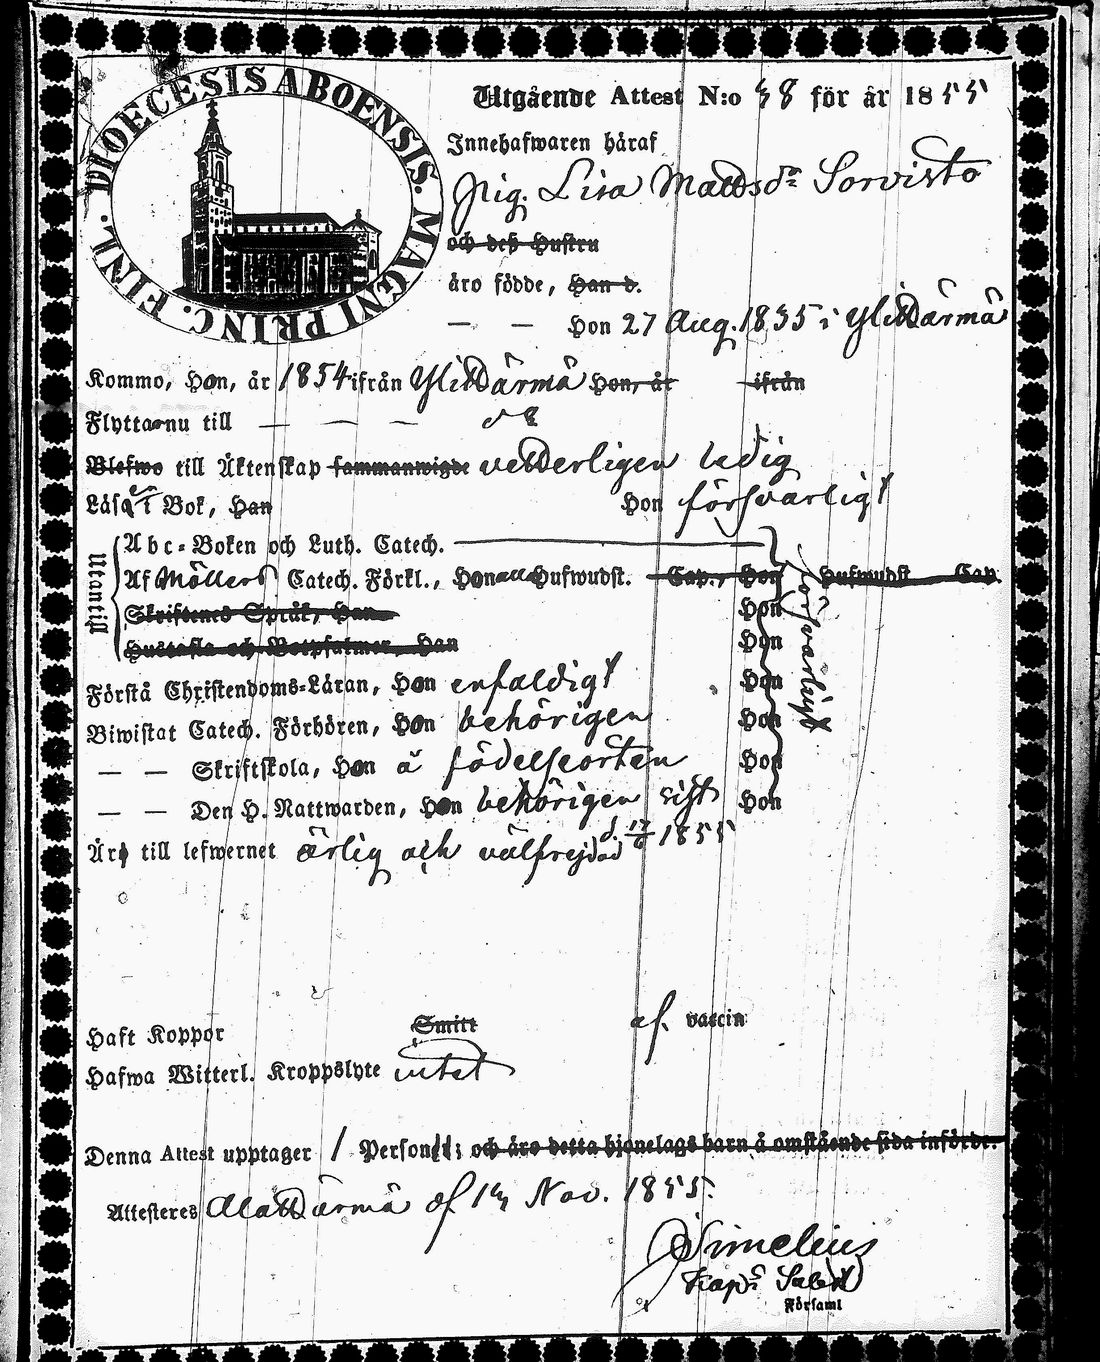 DIOECESIS ABOENSIS. MAGNI PRINC. FINL.
Utgående Attest N:o 48 för år 1855
Innehafwaren häraf
Pig. Lisa Mattsdr Sorvisto
och deß Hustru
äro födde, Han d.
— — Hon 27 Aug. 1835 i YliHärmä
Kommo, Hon, år 1854 ifrån YliHärmä Hon, år ifrån
Flytta nu till — — —
Blefwo till Äktenskap sammanwigde vetterligen ledig
Läsa i Bok, Han Hon försvarligt
Utantill
Abc-Boken och Luth. Catech.
Af Möllers Catech. Förkl., Hon alla Hufwudst. Cap., Hon Hufwudst. Cap.
Skriftenes Språk, Han Hon
Hustafla och Botpsalmer, Han Hon
försvarligt
Förstå Christendoms-Läran, Hon enfaldigt Hon
Biwistat Catech. Förhören, Hon behörigen Hon
— — Skriftskola, Hon å födelseorten Hon
— — Den H. Nattwarden, Hon behörigen sist Hon
d. 17/6 1855
Äro till lefwernet ärlig och välfrejdad
Haft Koppor Smitt af vaccin
Hafwa Witterl. Kroppslyte intet
Denna Attest upptager 1 Person; och äro detta hjonelags barn å omstående sida införde.
Attesteres AlaHärmä Nov. 1855.
Simelius
Kap:
Församl